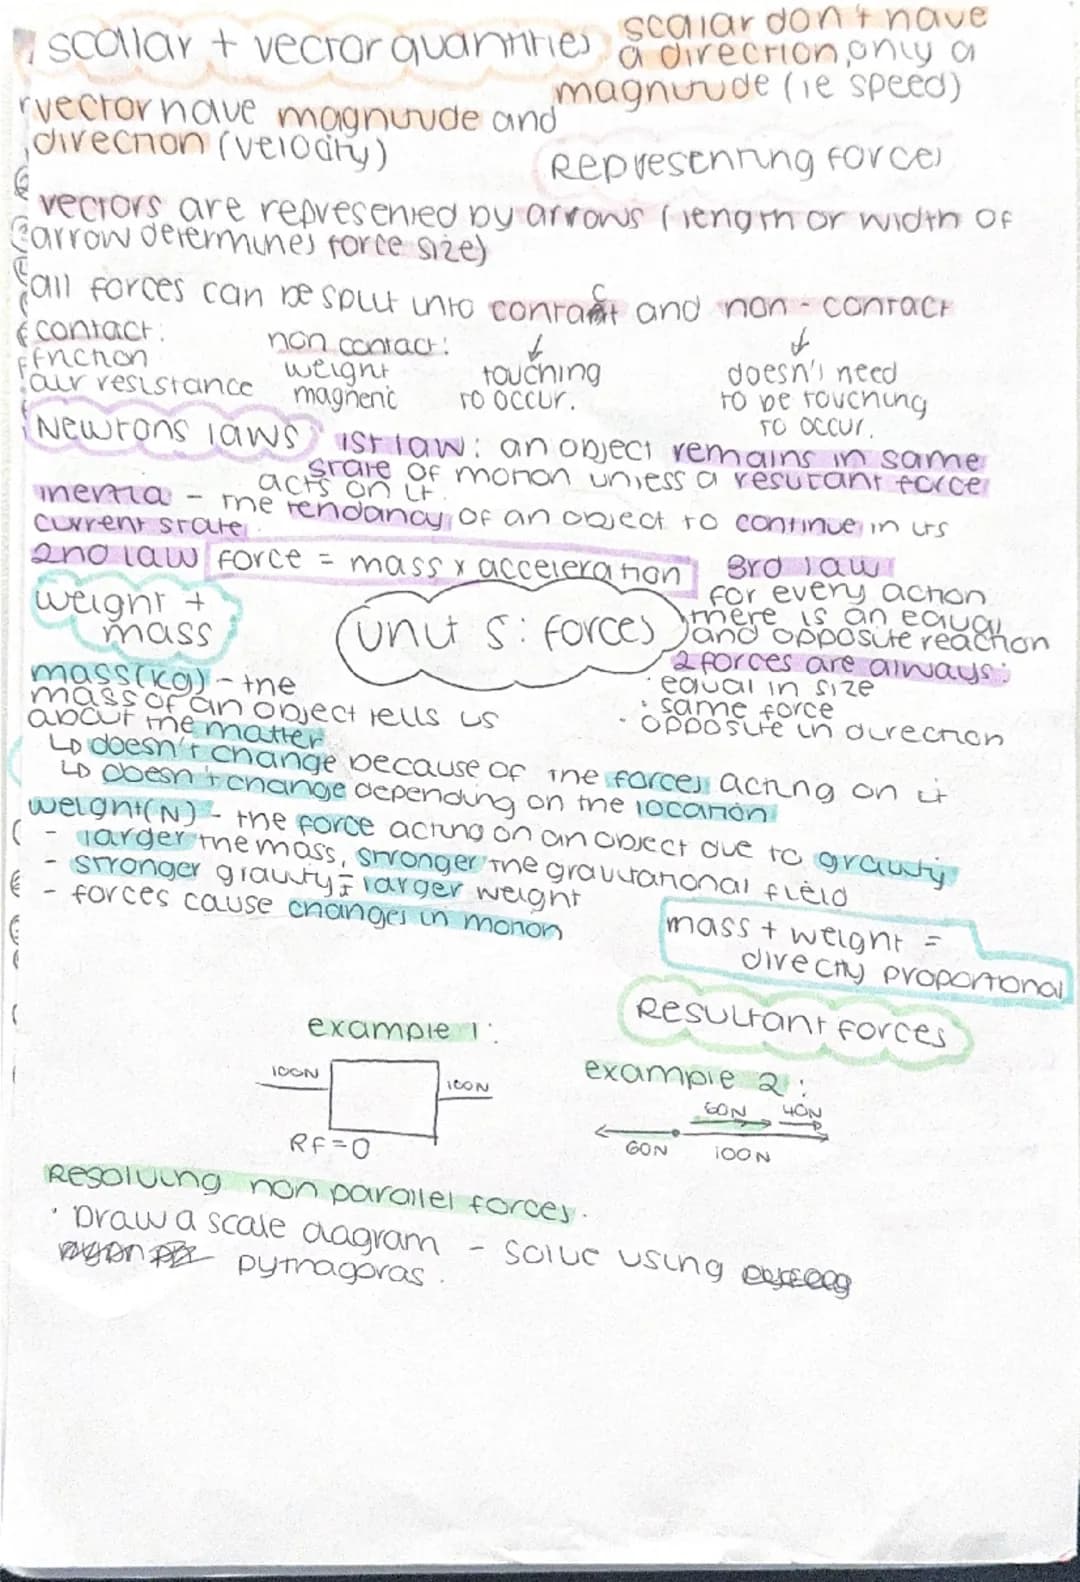 scallar + vector quantities
scalar don't have
a direction, only a
magnitude (ie speed)
vector have magnitude and
direction (velocity)
Representing forces
vectors are represented by arrows (length or width of
arrow determines force size)
all forces can be split into contact and non-contact
contact:
friction
air resistance
non contact:
weight
magnetic
touching
to occur.
doesn't need
to be touching
to occur.
Newtons laws
1st law: an object remains in same
state of motion unless a resutant force
acts on it.
inertia - the tendancy of an object to continue in its
current state
2nd law force = mass x acceleration
3rd law
for every action
there is an equal
and opposite reaction
2 forces are always:
· equal in size
· same force
· opposite in direction
weight +
mass
unit 5: forces
mass(kg) - the
mass of an object tells us
about the matter
↳ doesn't change because of the forces acting on it
↳ doesn't change depending on the location
weight(N) - the force acting on an object due to gravity
- larger the mass, stronger the gravitational field
- stronger gravity = larger weight
- forces cause changes in motion
mass + weight =
directly proportional
Resultant forces
example 1:
100N
100N
RF=0
example 2:
60N 40N
60N 100N
Resolving non parallel forces.
· Draw a scale diagram - solve using
pythagoras.